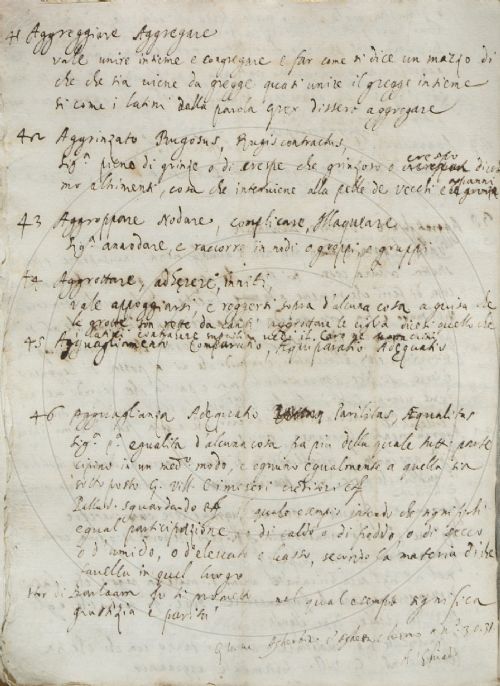 41 Aggreggiare Aggregare
vale unire insieme e congregare e far come si dice un mazzo di
che che sia viene da gregge quasi unire il gregge insieme
si come i latini dalla parola grex dissero aggregare
42 Aggrinzato Rugosus, Rugis contractus,
sig.ª pieno di grinze o di crespe che grinzoso o crespo dicia
mo altrimenti, cosa che interviene alla pelle de vecchi e
43 Aggroppare Nodare, complicare, Illaqueare
sig.ª annodare, e raccorre in nodi o groppi, o gruppi
44 Aggrottare, adherere, inniti,
vale appoggiarsi, e reggersi sopra d'alcuna cosa a guisa che
le grotte son rette da
45 Agguagliamento Comparatio, Aequiparatio Adequatio
46 Agguaglianza Adequatio Parilitas, Æqualitas
sig.ª egualità d'alcuna cosa fra più della quale tutti parte
cipino in un med.º modo, e ognuno egualmente a quella sia
sotto posto G. Vill. E miseri
il quale esempio intendo che significhi
egual participazione, o di caldo o di freddo, o di secco
o d'umido, o d'elevato e basso, secondo la materia di che
favella in quel luogo
Stor. di Barlaam nel qual esempio significa
giustizia e parità